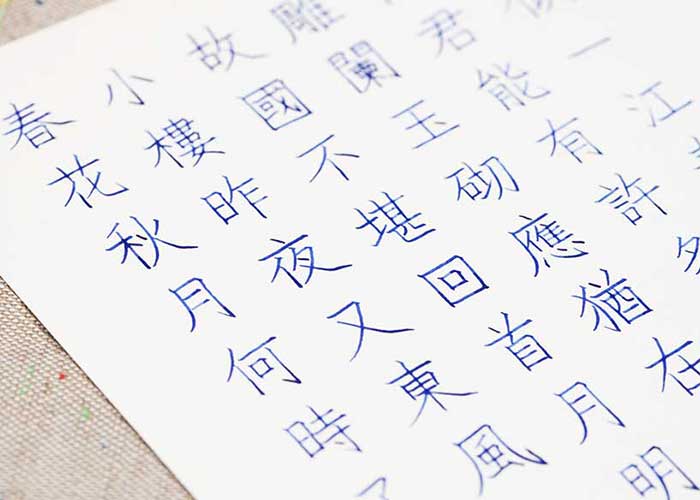 春花秋月何時
小樓昨夜又東風
故國不堪回首月明
雕闌玉砌應猶在
君能有許多
一江